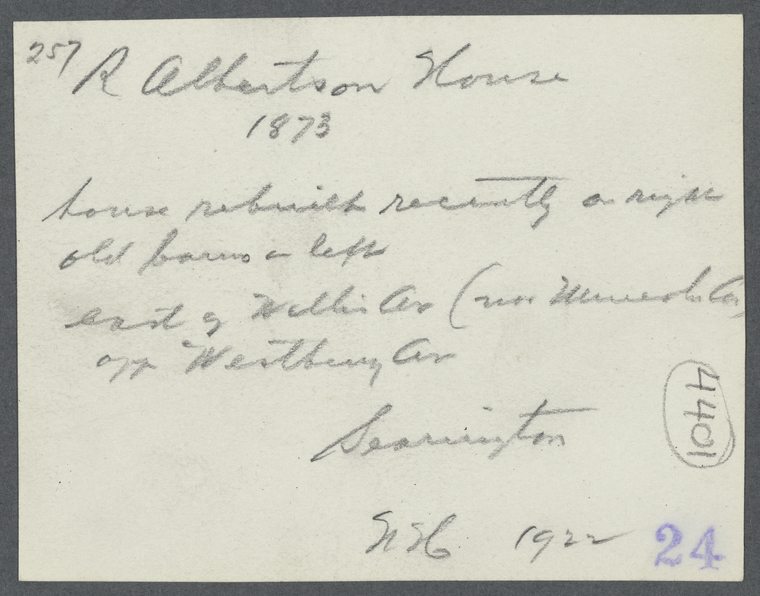 257 R Albertson House
1873
house rebuilt recently on right
old barns on left
east of Willis Av (now Mineola Av)
opp Westbury Av
Searington
N H 1922 24
4401